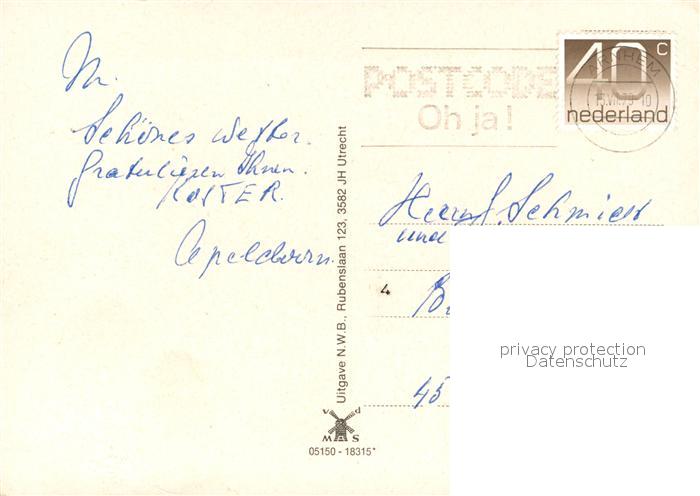 Schönes Wetter.
Gratulieren Ihnen.
KOSTER.
Apeldoorn.
Uitgave N.W.B., Rubenslaan 123, 3582 JH Utrecht
v d
M A S
05150 - 18315*
POSTCODE
Oh ja!
40 c
nederland
ARNHEM
Schmidt
und
4
45
privacy protection
Datenschutz